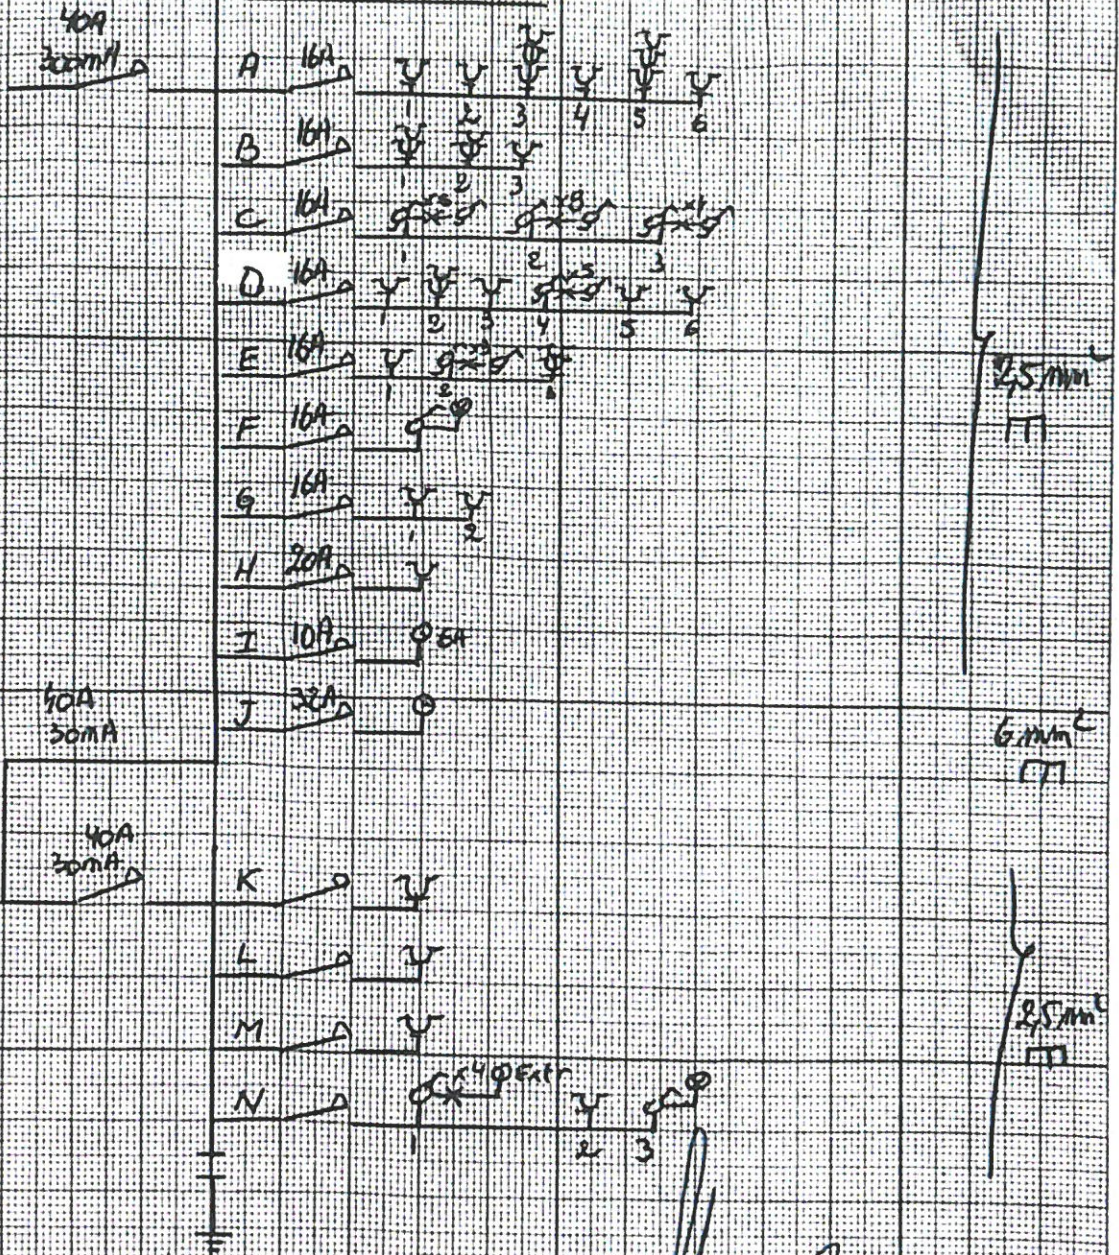 40A
300mA
A 16A
1 2 3 4 5 6
B 16A
1 2 3
C 16A x8
1 2 3
D 16A x5
1 2 3 4 5 6
E 16A x3
1 2
F 16A
G 16A
1 2
H 20A
I 10A 6A
J 32A
2,5 mm²
40A
30mA
6 mm²
40A
30mA
K
L
M
N x4 Extr
1 2 3
2,5 mm²